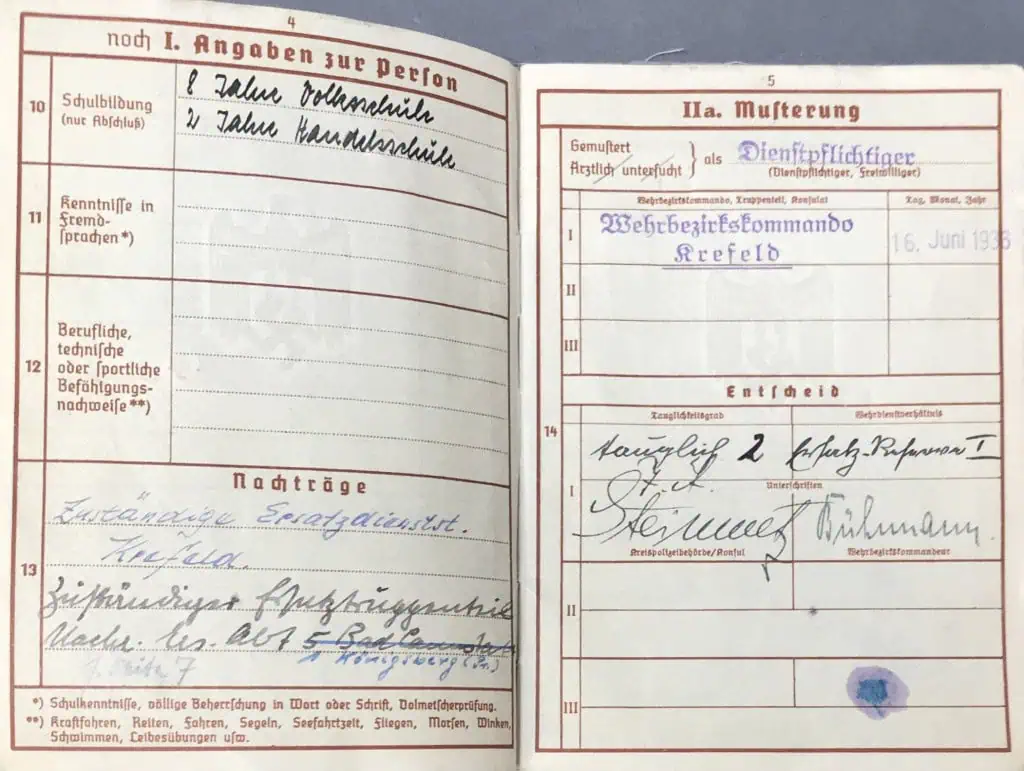 4
noch I. Angaben zur Person
10
Schulbildung
(nur Abschluß)
8 Jahre Volksschule
2 Jahre Handelsschule
11
Kenntnisse in
Fremd-
sprachen*)
12
Berufliche,
technische
oder sportliche
Befähigungs-
nachweise**)
13
Nachträge
Zuständige Ersatzdienstst.
Krefeld.
Zuständiger Ersatztruppenteil
Nachr. Ers. Abt 5 Bad Cannstatt
1 Königsberg (Pr.)
s. Seite 7
*) Schulkenntnisse, völlige Beherrschung in Wort oder Schrift, Dolmetscherprüfung.
**) Kraftfahren, Reiten, Fahren, Segeln, Seefahrtzeit, Fliegen, Morsen, Winken,
Schwimmen, Leibesübungen usw.
5
IIa. Musterung
Gemustert
Ärztlich untersucht
als
Dienstpflichtiger
(Dienstpflichtiger, Freiwilliger)
Wehrbezirkskommando, Truppenteil, Konsulat
Tag, Monat, Jahr
I
Wehrbezirkskommando
Krefeld
16. Juni 1938
II
III
Entscheid
14
Tauglichkeitsgrad
Wehrdienstverhältnis
I
tauglich 2
Ersatz-Reserve I
Unterschriften
J. A.
Bühmann.
Kreispolizeibehörde/Konsul
Wehrbezirkskommandeur
II
III